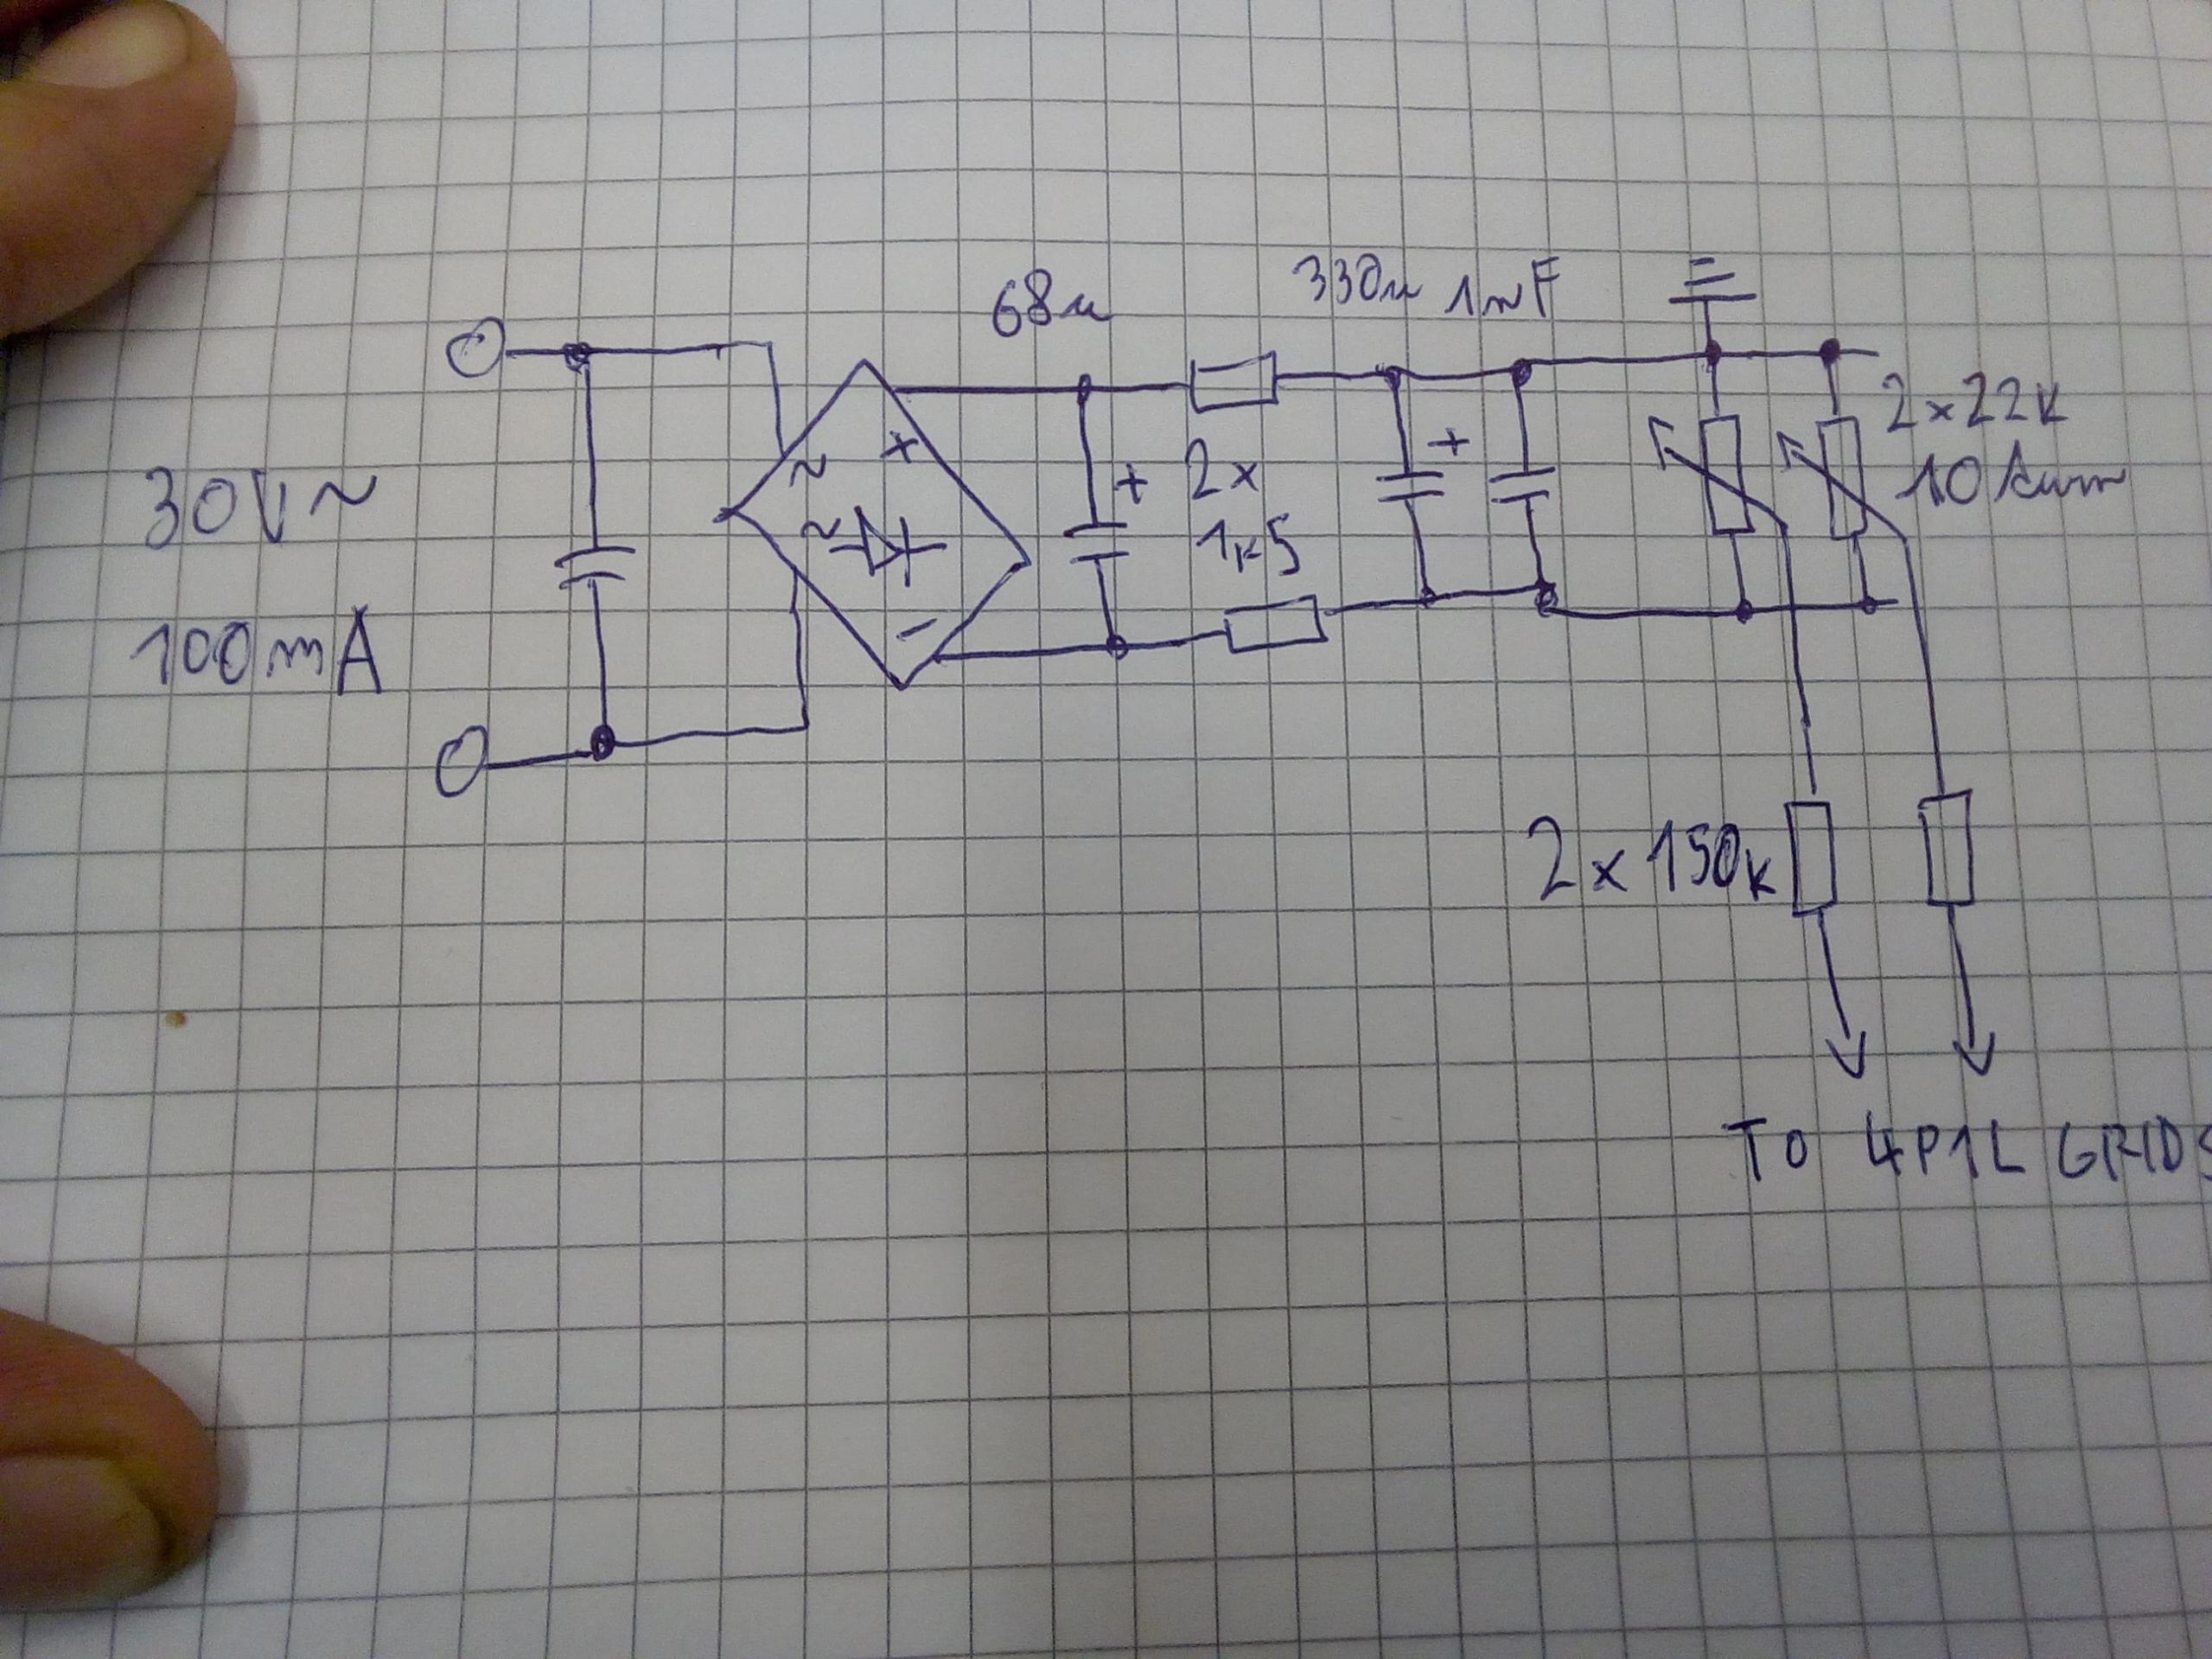 68u
330u 1nF
30V~
100mA
~ +
~
-
+
2x
1k5
+
2x22k
10turn
2x150k
TO 4P1L GRIDS